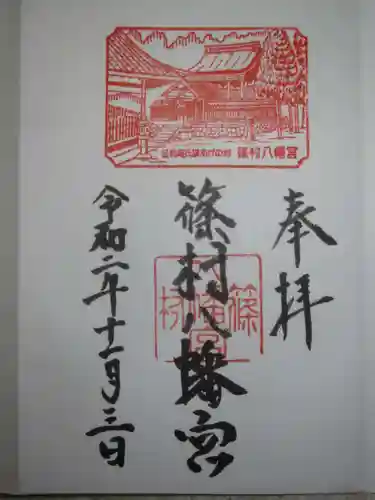 篠村八幡宮
奉拝
篠村八幡宮
篠村八幡宮
令和二年十一月三日